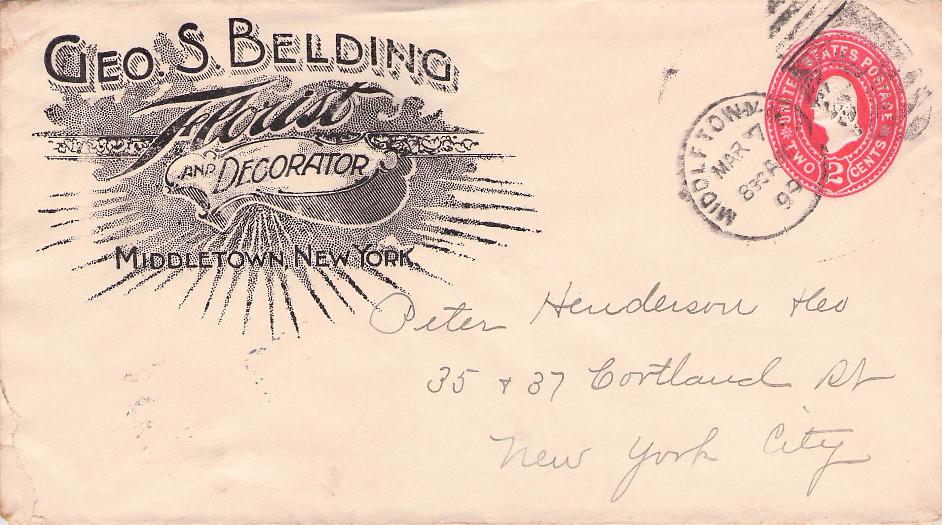 GEO. S. BELDING
Florist
AND DECORATOR
MIDDLETOWN, NEW YORK.
UNITED STATES POSTAGE
TWO 2 CENTS
MIDDLETOWN
MAR 7
Peter Henderson & Co
35 & 37 Cortland St
New York City